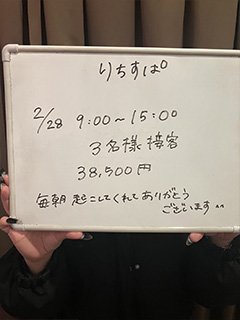 りちすぱ
2/28 9:00~15:00
3名様接客
38,500円
毎朝起こしてくれてありがとう
ございます^^